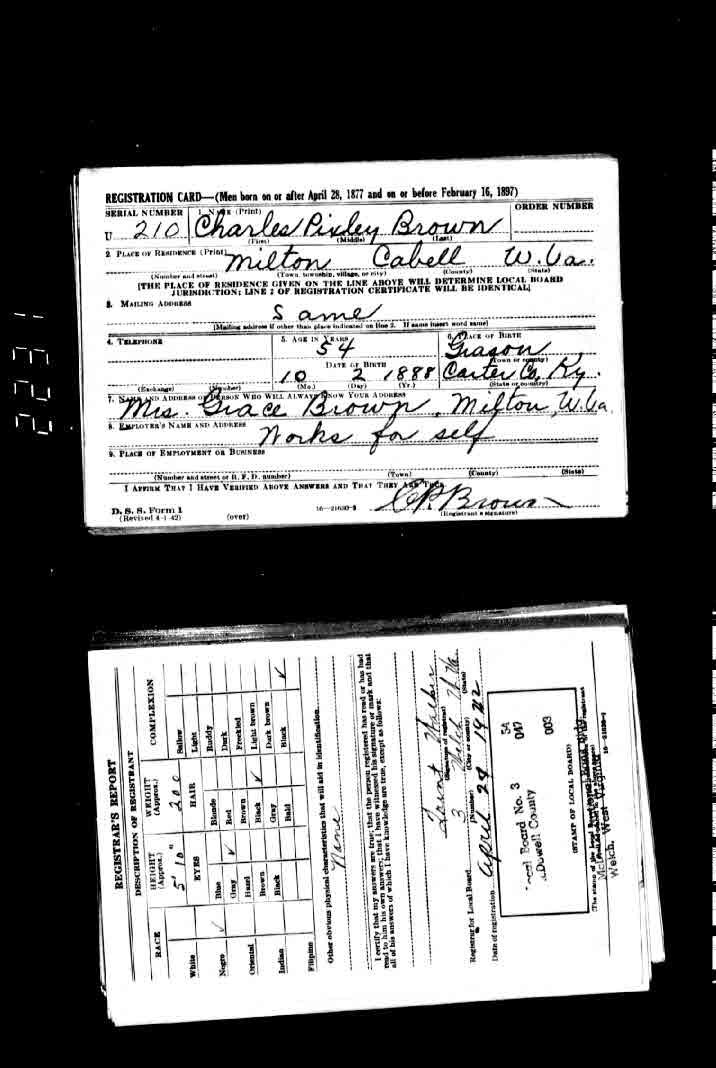 2231
REGISTRATION CARD—(Men born on or after April 28, 1877 and on or before February 16, 1897)
SERIAL NUMBER 1. NAME (Print) ORDER NUMBER
U 210 Charles Pixley Brown
(First) (Middle) (Last)
2. PLACE OF RESIDENCE (Print)
Milton Cabell W.Va.
(Number and street) (Town, township, village, or city) (County) (State)
[THE PLACE OF RESIDENCE GIVEN ON THE LINE ABOVE WILL DETERMINE LOCAL BOARD
JURISDICTION; LINE 2 OF REGISTRATION CERTIFICATE WILL BE IDENTICAL]
3. MAILING ADDRESS
Same
[Mailing address if other than place indicated on line 2. If same insert word same]
4. TELEPHONE 5. AGE IN YEARS 6. PLACE OF BIRTH
54 Grason
DATE OF BIRTH (Town or county)
10 2 1888 Carter Co, Ky.
(Exchange) (Number) (Mo.) (Day) (Yr.) (State or country)
7. NAME AND ADDRESS OF PERSON WHO WILL ALWAYS KNOW YOUR ADDRESS
Mrs. Grace Brown, Milton, W.Va.
8. EMPLOYER'S NAME AND ADDRESS
Works for self
9. PLACE OF EMPLOYMENT OR BUSINESS
(Number and street or R. F. D. number) (Town) (County) (State)
I AFFIRM THAT I HAVE VERIFIED ABOVE ANSWERS AND THAT THEY ARE TRUE.
C P. Brown
D. S. S. Form 1
(Revised 4-1-42) (over) 16—21630-2 (Registrant's signature)
REGISTRAR'S REPORT
DESCRIPTION OF REGISTRANT
RACE HEIGHT (Approx.) WEIGHT (Approx.) COMPLEXION
5' 10" 200
White EYES HAIR Sallow
Light
Negro ✓ Blue Blonde Ruddy
Gray ✓ Red Dark
Oriental Hazel Brown Freckled
Brown Black ✓ Light brown
Indian Black Gray Dark brown
Bald Black ✓
Filipino
Other obvious physical characteristics that will aid in identification
None
I certify that my answers are true; that the person registered has read or has had
read to him his own answers; that I have witnessed his signature or mark and that
all of his answers of which I have knowledge are true, except as follows:
(Signature of registrar)
Registrar for Local Board 3 Welch W.Va
(Number) (City or county) (State)
Date of registration April 27 1942
Local Board No. 3 54
McDowell County 047
003
(STAMP OF LOCAL BOARD)
Welch, West Virginia
16—21630-1